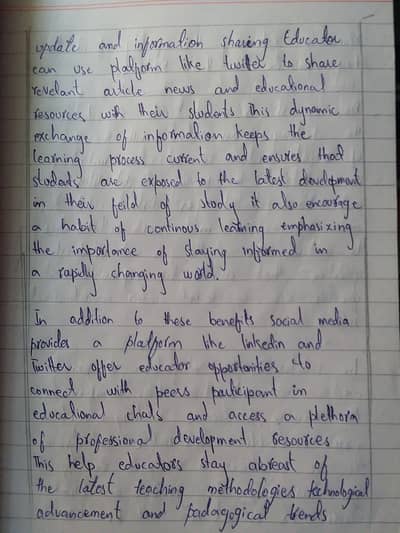 update and information sharing Educator
can use platform like twitter to share
revelant article news and educational
resources with their students This dynamic
exchange of information keeps the
learning process current and ensures that
students are exposed to the latest development
in their feild of study it also encourage
a habit of continous learning emphasizing
the importance of staying informed in
a rapidly changing world.
In addition to these benefits social media
provides a platform like linkedin and
Twitter offer educator opportunities to
connect with peers participant in
educational chats and access a plethora
of professional development resources
This help educators stay abreast of
the latest teaching methodologies technological
advancement and padagogical trends